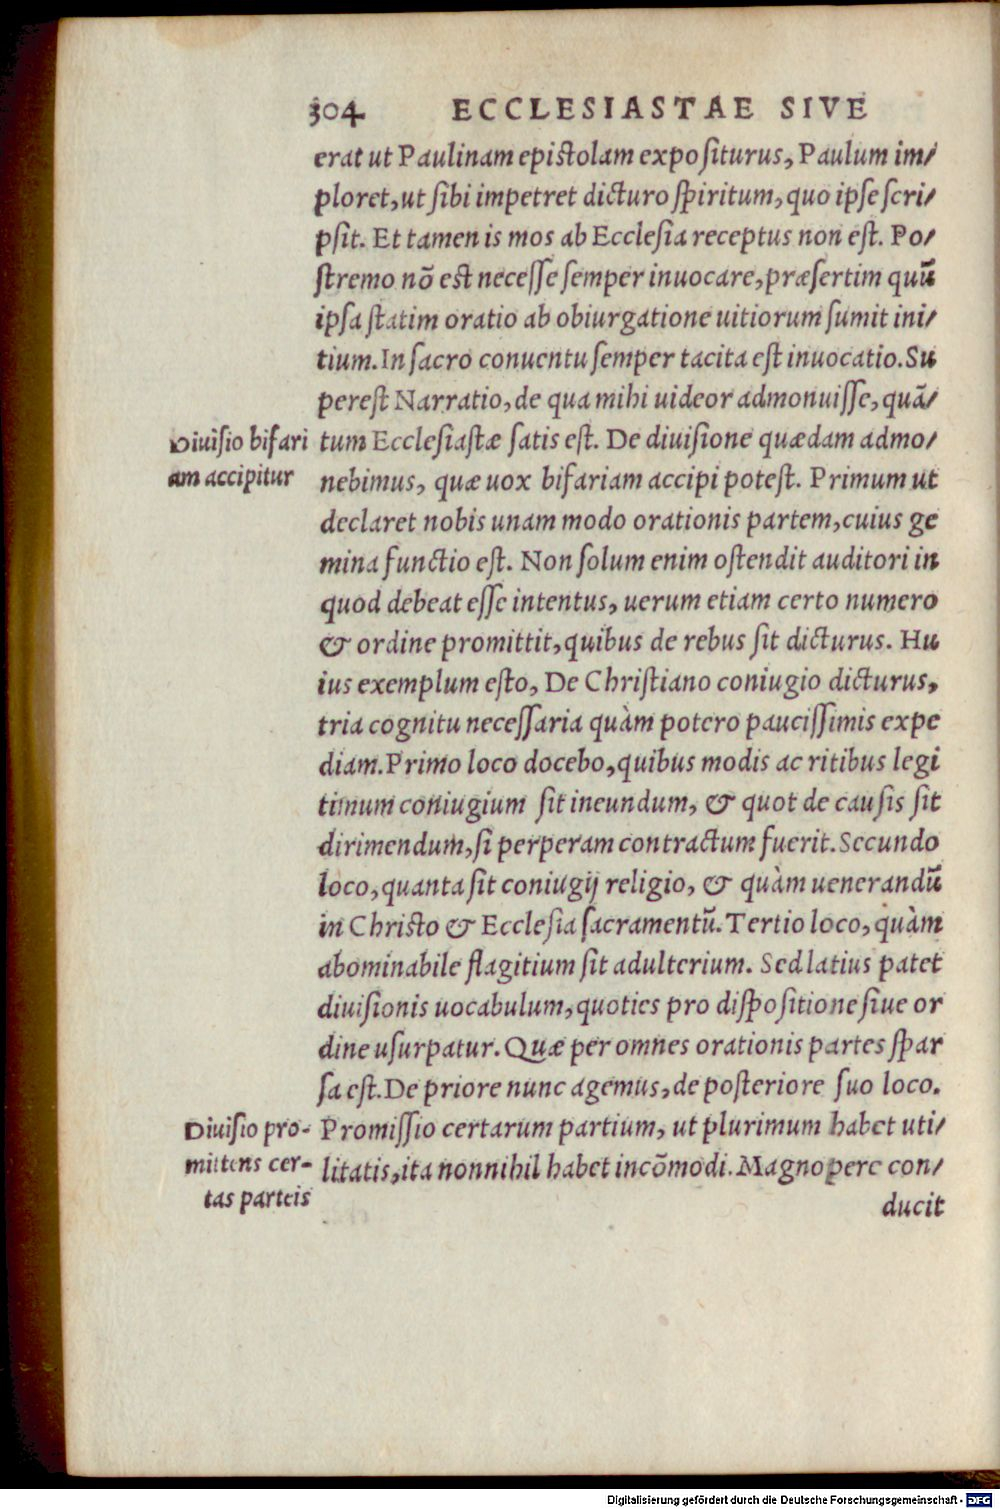 304 ECCLESIASTAE SIVE
erat ut Paulinam epistolam expositurus, Paulum im/
ploret, ut sibi impetret dicturo spiritum, quo ipse scri/
psit. Et tamen is mos ab Ecclesia receptus non est. Po/
stremo nõ est necesse semper inuocare, præsertim quũ
ipsa statim oratio ab obiurgatione uitiorum sumit ini/
tium. In sacro conuentu semper tacita est inuocatio. Su
perest Narratio, de qua mihi uideor admonuisse, quã/
Diuisio bifari
am accipitur
tum Ecclesiastæ satis est. De diuisione quædam admo/
nebimus, quæ uox bifariam accipi potest. Primum ut
declaret nobis unam modo orationis partem, cuius ge
mina functio est. Non solum enim ostendit auditori in
quod debeat esse intentus, uerum etiam certo numero
& ordine promittit, quibus de rebus sit dicturus. Hu
ius exemplum esto, De Christiano coniugio dicturus,
tria cognitu necessaria quàm potero paucissimis expe
diam. Primo loco docebo, quibus modis ac ritibus legi
timum coniugium sit ineundum, & quot de causis sit
dirimendum, si perperam contractum fuerit. Secundo
loco, quanta sit coniugij religio, & quàm uenerandũ
in Christo & Ecclesia sacramentũ. Tertio loco, quàm
abominabile flagitium sit adulterium. Sed latius patet
diuisionis uocabulum, quoties pro dispositione siue or
dine usurpatur. Quæ per omnes orationis partes spar
sa est. De priore nunc agemus, de posteriore suo loco.
Diuisio pro-
mittens cer-
tas parteis
Promissio certarum partium, ut plurimum habet uti/
litatis, ita nonnihil habet incõmodi. Magnopere con/
ducit
Digitalisierung gefördert durch die Deutsche Forschungsgemeinschaft - DFG